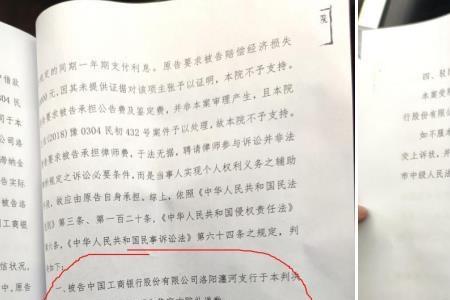 院
规定的同期一年期支付利息。原告要求被告赔偿经济损失
000元,因其未提供证据对该项主张予以证明,本院不予支持。
要求被告承担公告费及鉴定费,并非本案审理产生,且本院
(2018)豫0304民初432号案件予以处理,故本院不予支持。
要求被告承担律师费,于法无据,聘请律师参与诉讼并非法
规定之诉讼必要条件,而是当事人实现个人权利义务之辅助
故应由原告自身承担。综上,依照《中华人民共和国民法
》第三条、第一百二十条,《中华人民共和国侵权责任法》
六条,《中华人民共和国民事诉讼法》第六十四条之规定,判
如下:
一、被告中国工商银行股份有限公司洛阳瀍河支行于本判决
借款
304民
同于本
公司洛
滞纳金
告实际
工商银
信状况,
四、驳
本案受
行股份有限公
如不服
交上诉状,并
市中级人民法